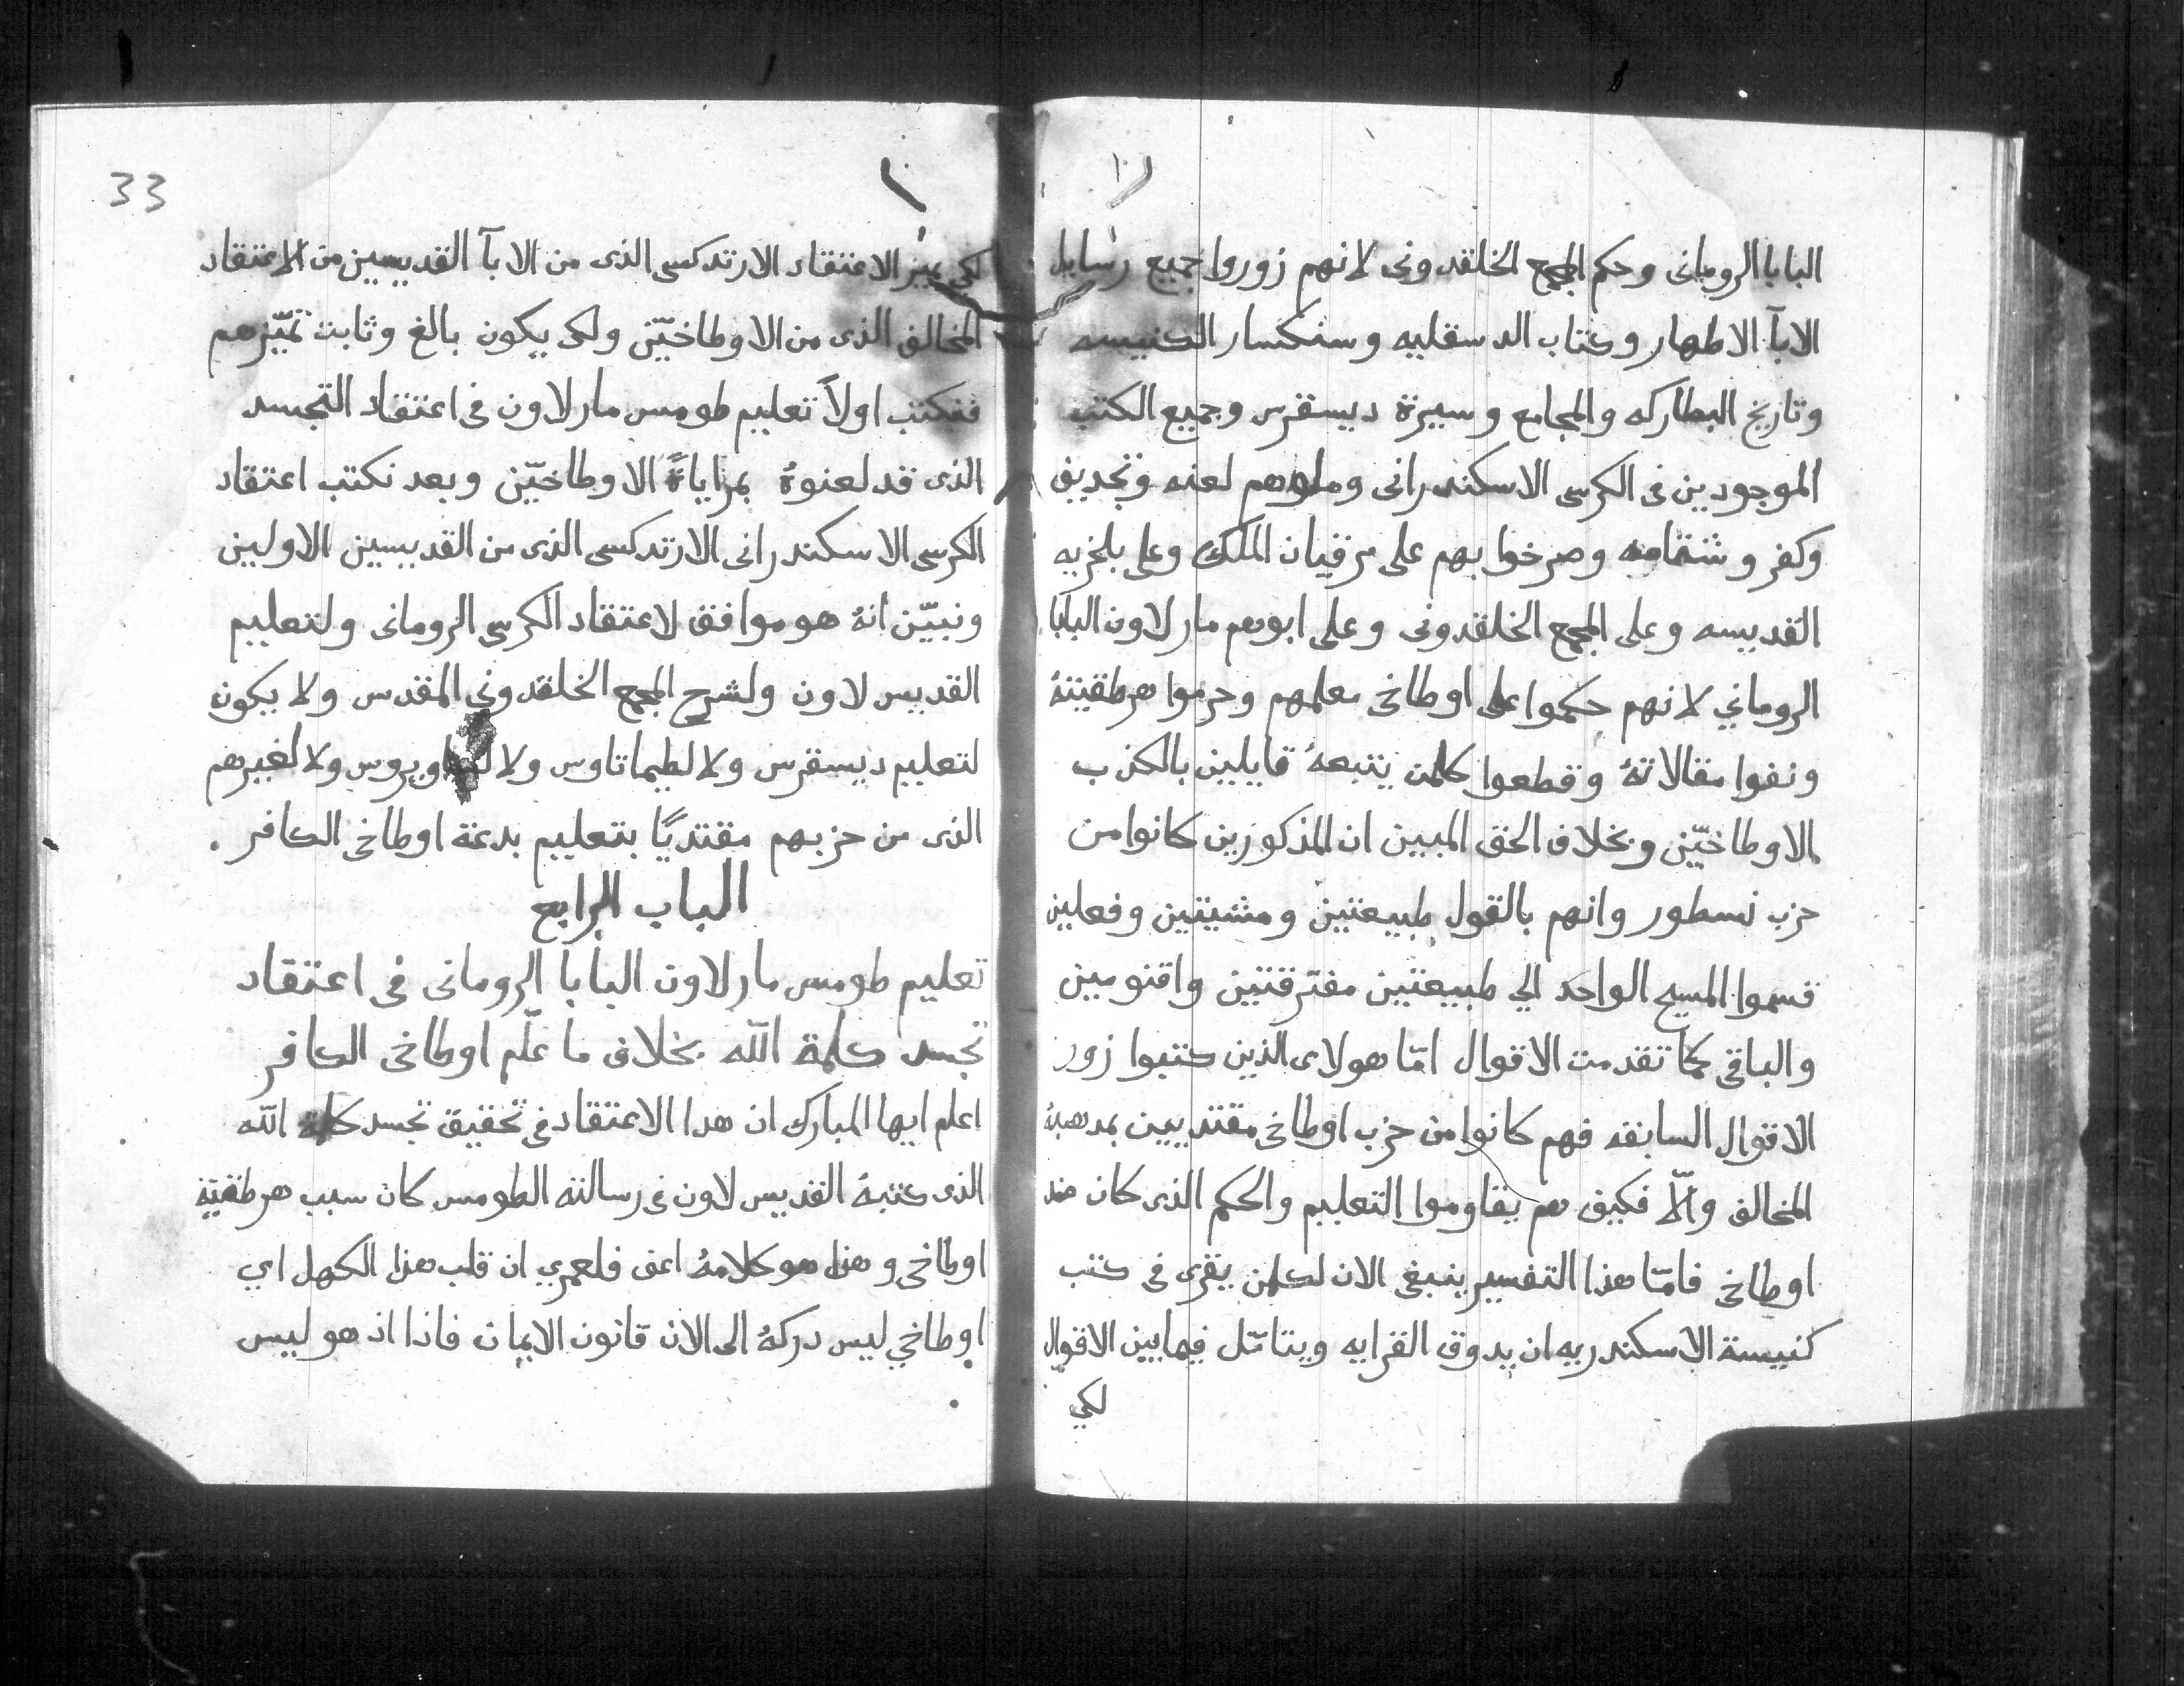 البابا الرومانى وحكم المجمع الخلقدونى لانهم زوروا جميع رسايل
الابآ الاطهار وكتاب الدسقليه وسنكسار الكنيسه
وتاريخ البطاركه والمجامع وسيرة ديسقرس وجميع الكتب
الموجودين فى الكرسى الاسكندرانى وملوهم لعنه وتجديف
وكفر وشتامه وصرخوا بهم على مرقيان الملك وعلى بلخريه
القديسه وعلى المجمع الخلقدونى وعلى ابوهم مار لاون البابا
الروماني لانهم حكموا على اوطاخى معلمهم وحرموا هرطقيتهُ
ونفوا مقالاتهُ وقطعوا كلمن يتبعهُ قايلين بالكذب
الاوطاخيّن وبخلاف الحق المبين ان المذكورين كانوا من
حزب نسطور وانهم بالقول طبيعتين ومشيتين وفعلين
قسموا المسيح الواحد الي طبيعتين مفترقتين واقنومين
والباقى كما تقدمت الاقوال امّا هولاى الذين كتبوا زور
الاقوال السابقه فهم كانوا من حزب اوطاخى مقتديين بمدهبهُ
المخالف والّا فكيف هم يقاوموا التعليم والحكم الذى كان ضد
اوطاخى فامّا هذا التفسير ينبغى الان لكلمن يقرى فى كتب
كنيسة الاسكندريه ان يدوق القرايه ويتامّل فيما بين الاقوال
لكي
33
لكي يميز الاعتقاد الارتدكسى الذى من الابآ القديسين من الاعتقاد
المخالف الذى من الاوطاخيّن ولكى يكون بالغ وثابت تميّزهم
فنكتب اولاً تعليم طومس مار لاون فى اعتقاد التجسد
الذى قد لعنوهُ بمراياةً الاوطاخيّن وبعد نكتب اعتقاد
الكرسى الاسكندرانى الارتدكسى الذى من القديسين الاولين
ونبيّن انهُ هو موافق لاعتقاد الكرسى الرومانى ولتعليم
القديس لاون ولشرح المجمع الخلقدوني المقدس ولا يكون
لتعليم ديسقرس ولا لطيماتاوس ولا ولا لغيرهم
الذى من حزبهم مقتديًا بتعليم بدعة اوطاخى الكافر .
الباب الرابع
تعليم طومس مار لاون البابا الرومانى فى اعتقاد
تجسد كلمة اللّه بخلاف ما علّم اوطاخى الكافر
اعلم ايها المبارك ان هدا الاعتقاد فى تحقيق تجسد كلمة اللّه
الذى كتبهُ القديس لاون فى رسالته الطومس كان سبب هرطقيّة
اوطاخى وهذا هو كلامهُ اعنى فلعمري ان قلب هذا الكهل اي
اوطاخي ليس دركهُ الى الان قانون الايمان فاذا اذ هو ليس